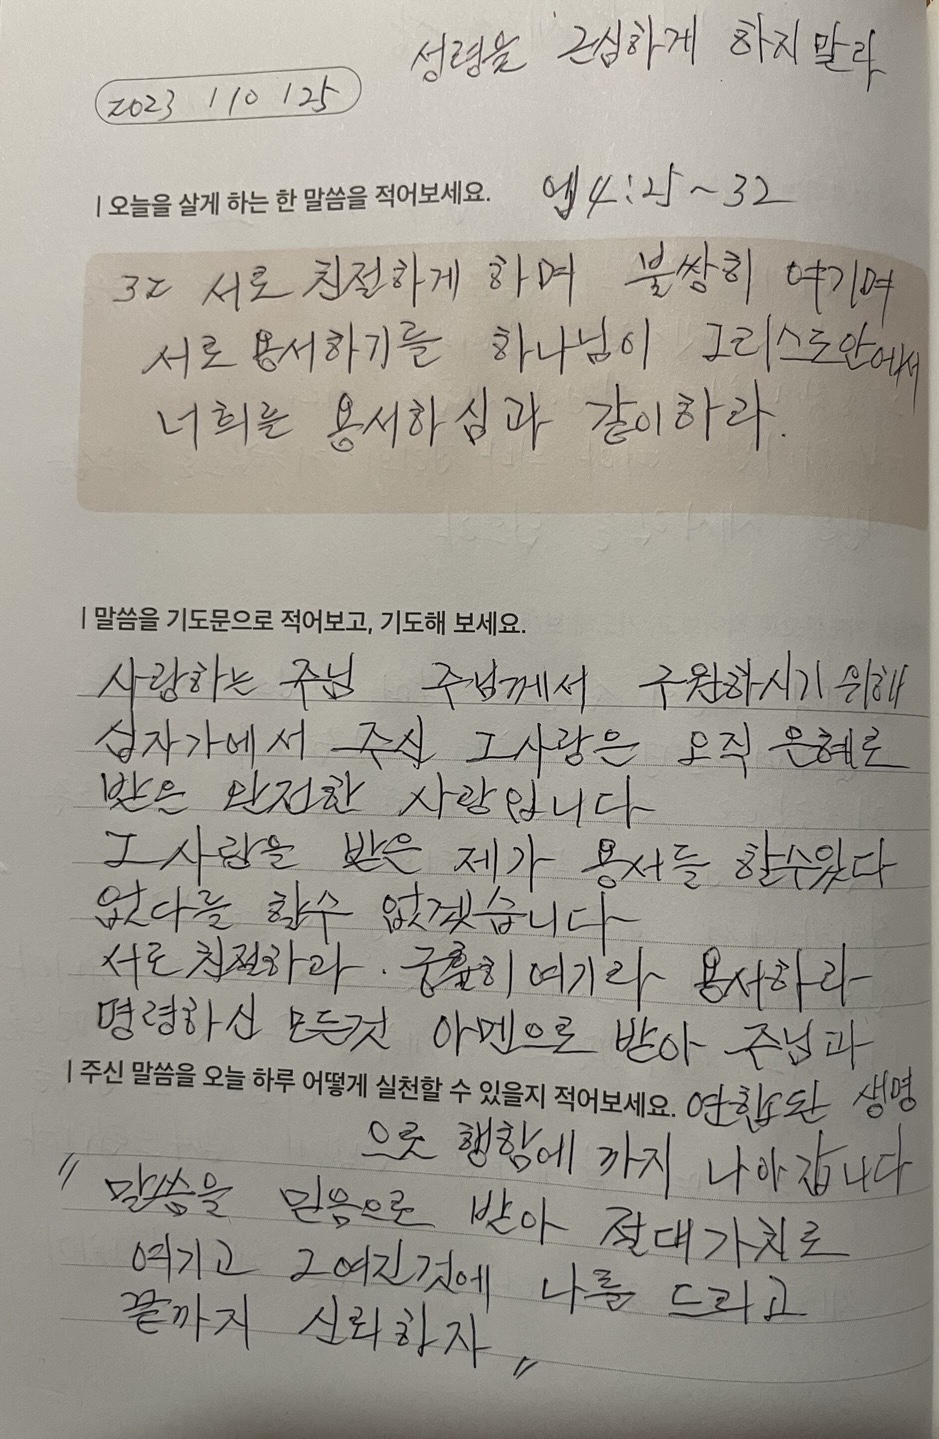 성령을 근심하게 하지말라
2023 / 10 / 25
| 오늘을 살게 하는 한 말씀을 적어보세요. 엡4:25~32
32 서로 친절하게 하며 불쌍히 여기며
서로 용서하기를 하나님이 그리스도안에서
너희를 용서하심과 같이하라.
| 말씀을 기도문으로 적어보고, 기도해 보세요.
사랑하는 주님 주님께서 구원하시기 위해
십자가에서 주신 그사랑은 오직 은혜로
받은 완전한 사랑입니다
그 사랑을 받은 제가 용서를 할수있다
없다를 할수 없겠습니다
서로 친절하라. 긍휼히 여기라 용서하라
명령하신 모든것 아멘으로 받아 주님과
| 주신 말씀을 오늘 하루 어떻게 실천할 수 있을지 적어보세요. 연합된 생명
으로 행함에 까지 나아갑니다
" 말씀을 믿음으로 받아 절대가치로
여기고 그여진것에 나를 드리고
끝까지 신뢰하자 "